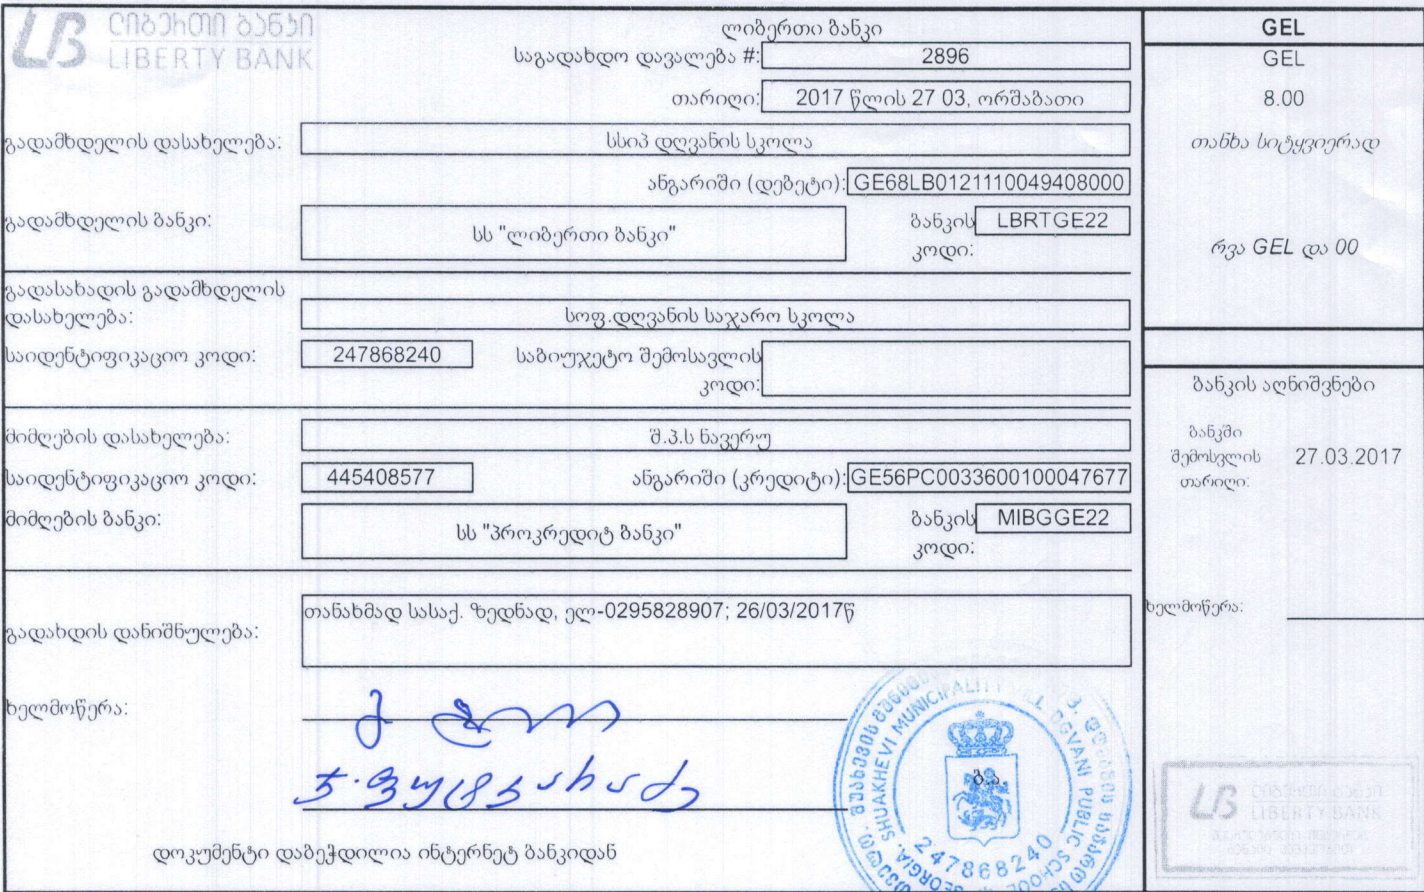 ლიბერთი ბანკი
LIBERTY BANK
ლიბერთი ბანკი
საგადახდო დავალება #: 2896
თარიღი: 2017 წლის 27 03, ორშაბათი
გადამხდელის დასახელება: სსიპ დღვანის სკოლა
ანგარიში (დებეტი): GE68LB0121110049408000
გადამხდელის ბანკი: სს "ლიბერთი ბანკი"
ბანკის კოდი: LBRTGE22
გადასახადის გადამხდელის
დასახელება: სოფ.დღვანის საჯარო სკოლა
საიდენტიფიკაციო კოდი: 247868240
საბიუჯეტო შემოსავლის
კოდი:
მიმღების დასახელება: შ.პ.ს ნავერუ
საიდენტიფიკაციო კოდი: 445408577
ანგარიში (კრედიტი): GE56PC0033600100047677
მიმღების ბანკი: სს "პროკრედიტ ბანკი"
ბანკის კოდი: MIBGGE22
გადახდის დანიშნულება: თანახმად სასაქ. ზედნად, ელ-0295828907; 26/03/2017წ
ხელმოწერა:
ბ.ა.
დოკუმენტი დაბეჭდილია ინტერნეტ ბანკიდან
GEL
GEL
8.00
თანხა სიტყვიერად
რვა GEL და 00
ბანკის აღნიშვნები
ბანკში
შემოსვლის
თარიღი:
27.03.2017
ხელმოწერა:
SHUAKHEVI MUNICIPALITY DGVANI PUBLIC SCHOOL
247868240
ლიბერთი ბანკი
LIBERTY BANK